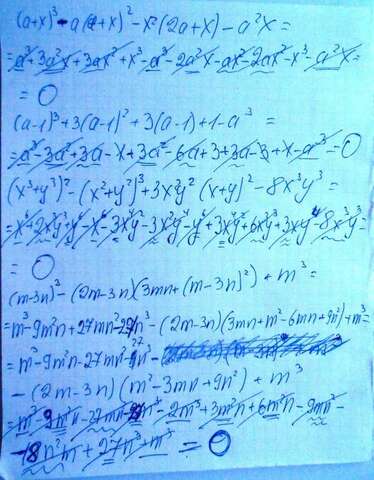 (a+x)³-a(a+x)²-x²(2a+x)-a²x=
=a³+3a²x+3ax²+x³-a³-2a²x-ax²-2ax²-x³-a²x=
=0
(a-1)³+3(a-1)²+3(a-1)+1-a³=
=a³-3a²+3a-1+3a²-6a+3+3a-3+1-a³=0
(x³+y³)²-(x²+y²)³+3x²y²(x+y)²-8x³y³=
=x⁶+2x³y³+y⁶-x⁶-3x⁴y²-3x²y⁴-y⁶+3x⁴y²+6x³y³+3x²y⁴-8x³y³=
=0
(m-3n)³-(2m-3n)(3mn+(m-3n)²)+m³=
=m³-9m²n+27mn²-27n³-(2m-3n)(3mn+m²-6mn+9n²)+m³=
=m³-9m²n-27mn-27n³-
-(2m-3n)(m²-3mn+9n²)+m³
=m³-9m²n-27mn-27n³-2m³+3m²n+6m²n-9mn²-
-18n²m+27n³+m³=0